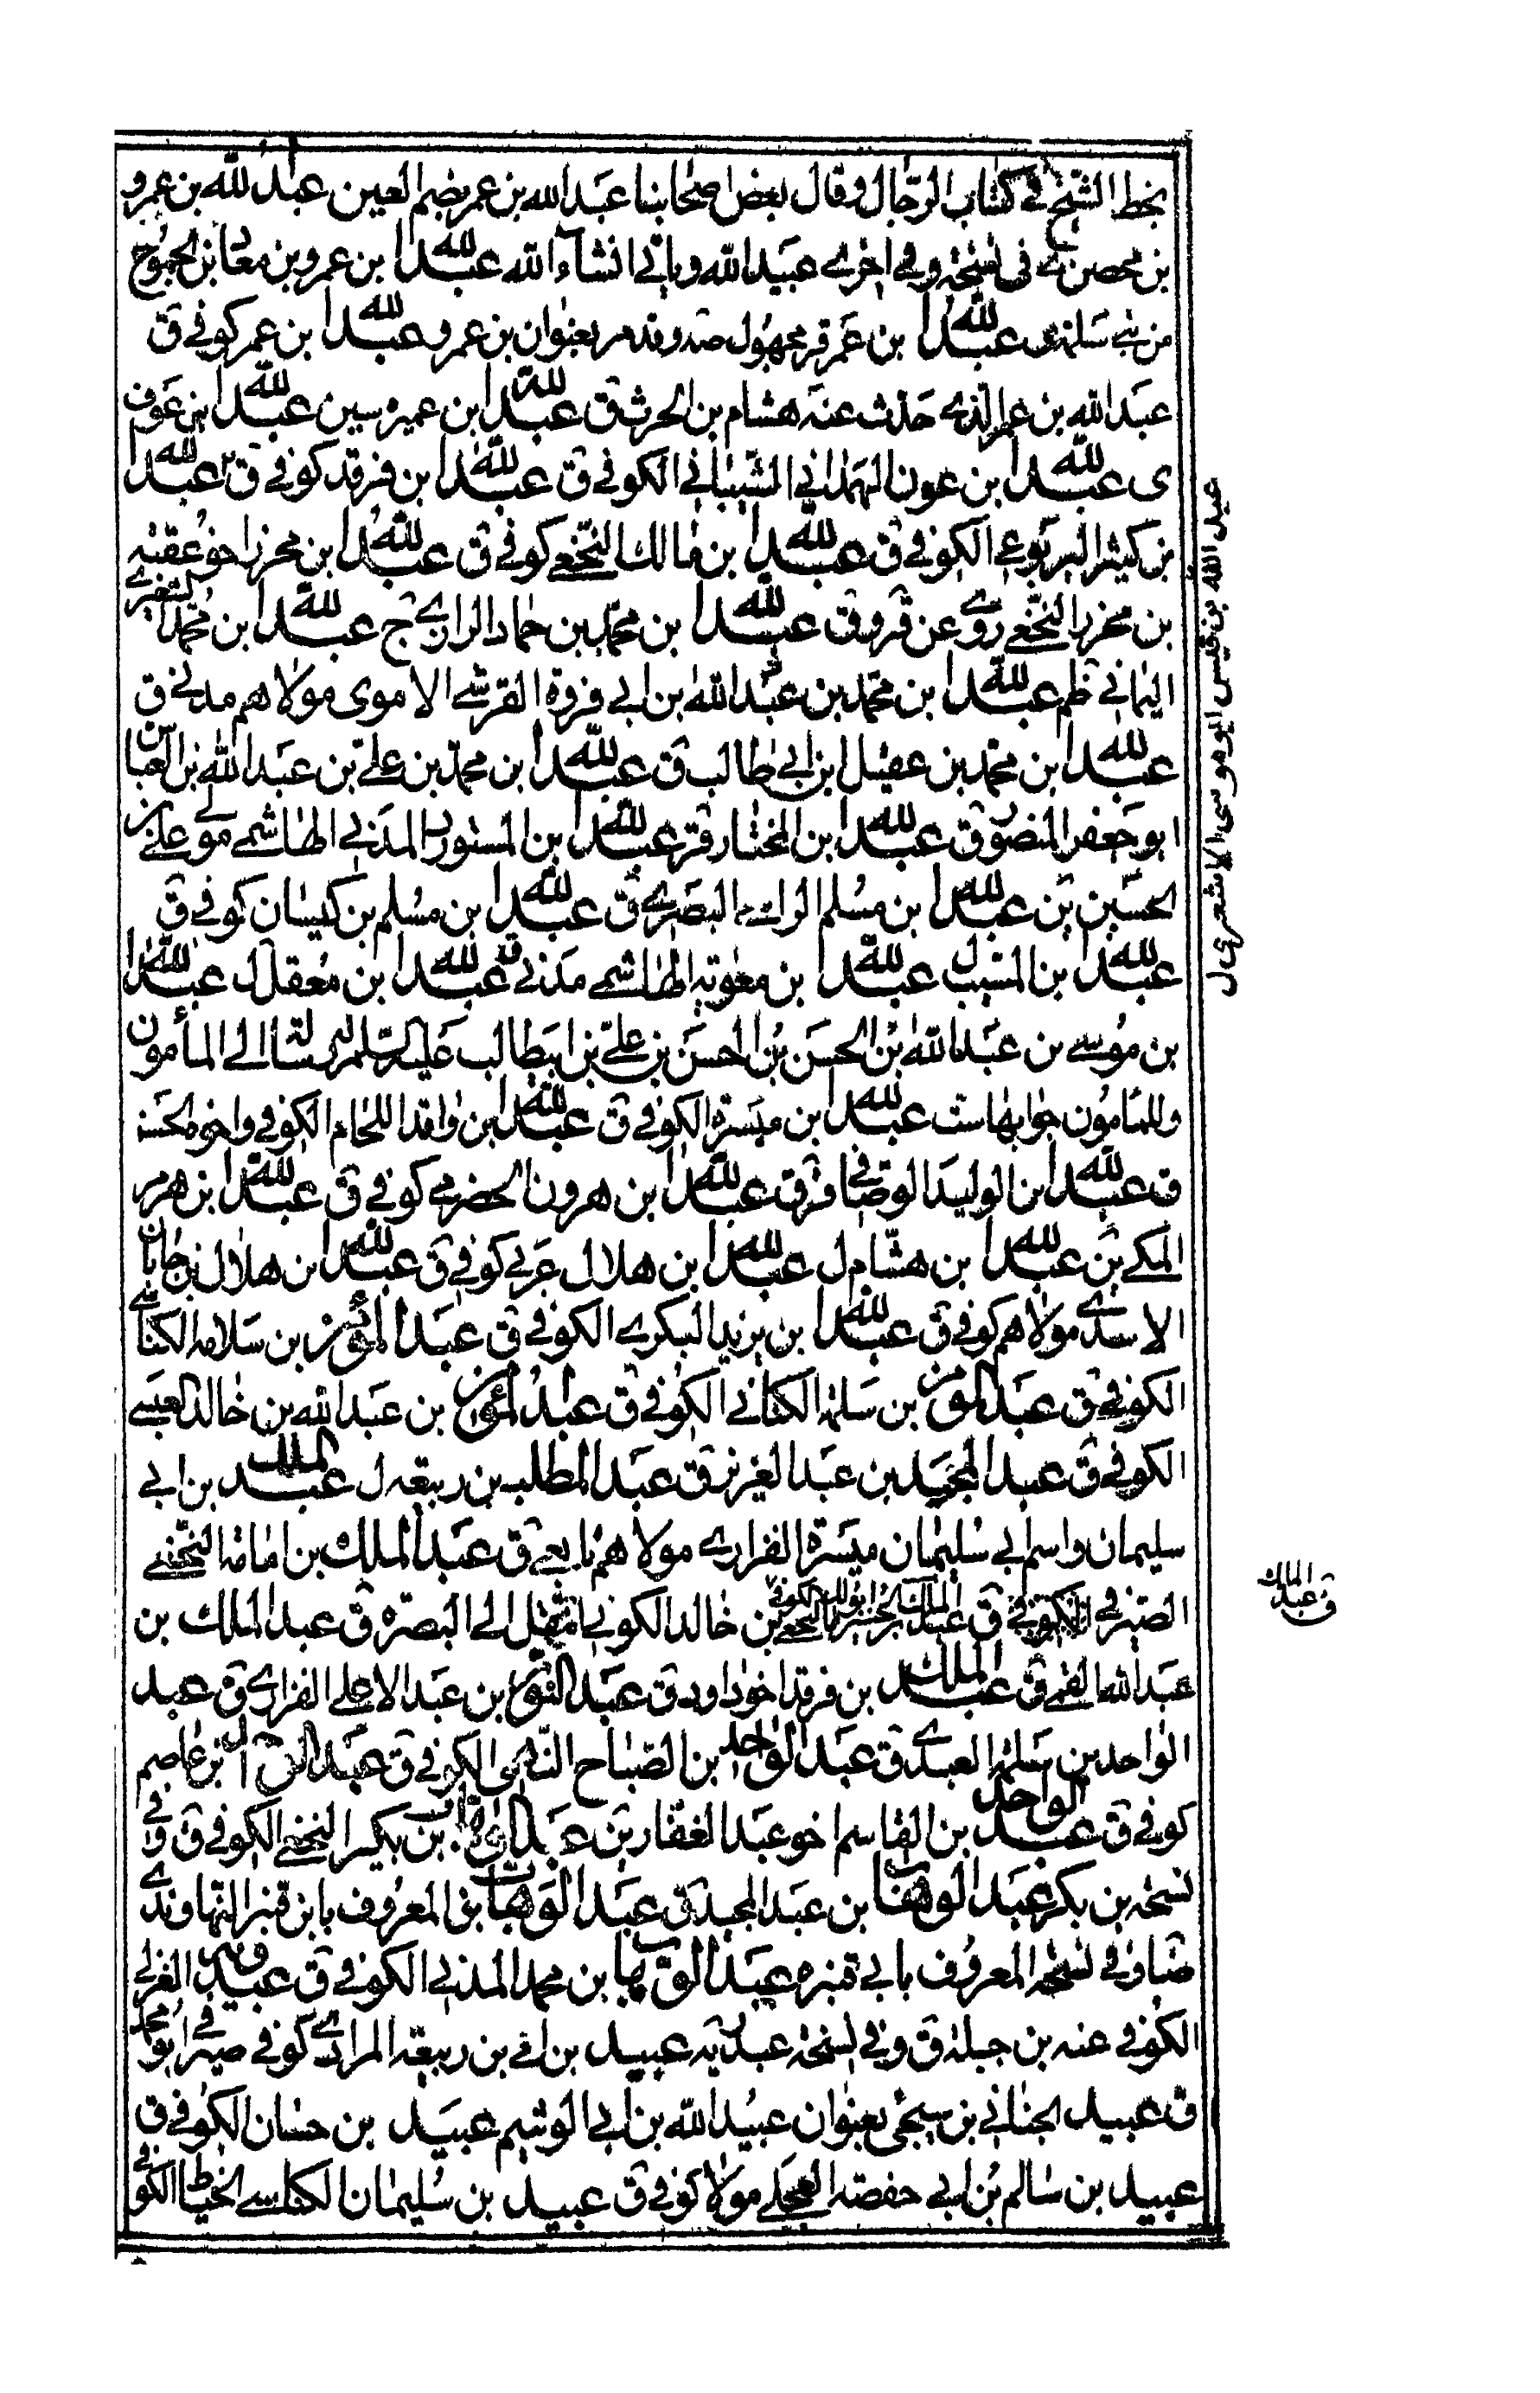 بخط الشيخ في كتاب الرجال وقال بعض اصحابنا عبد الله بن عمر بضم العين عبد الله بن عمرو
بن محصن ى في نسخة وفي اخرى عبيد الله وياتي انشاء الله عبد الله بن عمرو بن معاذ بن الجموح
من بني سلمة ى عبد الله بن عمر قر مجهول صه وقد مر بعنوان بن عمرو عبد الله بن عمر كوفي ق
عبد الله بن عمر الذي حدث عنه هشام بن الحرث ق عبد الله بن عميرة سين عبد الله بن عوف
ى عبد الله بن عون الهمداني الشيباني الكوفي ق عبد الله بن فرقد كوفي ق عبد الله
بن كثير اليربوعي الكوفي ق عبد الله بن مالك النخعي كوفي ق عبد الله بن محرز اخو عقبة
بن محرز النخعي روى عن قر وق عبد الله بن محمد بن حماد الرازي ج عبد الله بن محمد الشعيري
اليماني ظم عبد الله بن محمد بن عبد الله بن ابي فروة القرشي الاموي مولاهم مدني ق
عبد الله بن محمد بن عقيل ابن ابي طالب ق عبد الله بن محمد بن علي بن عبد الله بن العباس
ابو جعفر المنصور ق عبد الله بن المختار قر عبد الله بن المستورد المدني الهاشمي مولى علي بن
الحسين ين عبد الله بن مسلم البصري ق عبد الله بن مسلم بن كيسان كوفي ق
عبد الله بن المسيب ل عبد الله بن معوية الهاشمي مدني ق عبد الله بن معقل ل عبد الله
بن موسى بن عبد الله بن الحسن بن الحسن بن علي بن ابيطالب عليه السلم له رسالة الى المأمون
وللمأمون جوابها ست عبد الله بن ميسرة الكوفي ق عبد الله بن واقد اللحام الكوفي واخوه الحسن
ق عبد الله بن الوليد الوصافي قر ق عبد الله بن هرون الحضرمي كوفي ق عبد الله بن هرمز
المكي ين عبد الله بن هشام ل عبد الله بن هلال عربي كوفي ق عبد الله بن هلال بن جابان
الاسدي مولاهم كوفي ق عبد الله بن يزيد البكري الكوفي ق عبد المؤمن بن سلامه الكناني
الكوفي ق عبد المؤمن بن سلمة الكناني الكوفي ق عبد المؤمن بن عبد الله بن خالد العبسي
الكوفي ق عبد المجيد بن عبد العزيز ق عبد المطلب بن ربيعه ل عبد الملك بن ابي
سليمان واسم ابي سليمان ميسرة الفزاري مولاهم تابعي ق عبد الملك بن امامة النخعي
الصيرفي الكوفي ق عبد الملك النخعي الكوفي بن خالد الكوفي انتقل الى البصرة ق عبد الملك بن
عبد الله القمي ق عبد الملك بن فرقد اخو داود ق عبد النور بن عبد الاعلى الفزاري ق عبد
الواحد بن سلمة العبدي ق عبد الواحد بن الصباح الكوفي ق عبد بن عاصم
كوفي ق عبد الواحد بن القاسم اخو عبد الغفار ين عبد بن بكير النخعي الكوفي ق وفي
نسخة بن بكر عبد الوهاب بن عبد المجيد ق عبد الوهاب المعروف بابن قنبر النهاوندي
ضا وفي نسخة المعروف بابي قنبره عبد الوهاب بن محمد المدني الكوفي ق عبدوس الغزلي
الكوفي عنه بن جبلة ق وفي نسخة عبد ربه عبيد بن بن ربيعة المرادي كوفي صيرفي ابو محمد
ق عبيد الجناني بن سيجئ بعنوان عبيد الله بن ابي الوشيم عبيد بن حسان الكوفي ق
عبيد بن سالم بن ابي حفصة العجلي مولا كوفي ق عبيد بن سليمان الكناسي الخياط الكوفي
عبد الله بن قيس ابو موسى الاشعري ل
ق عبد الملك